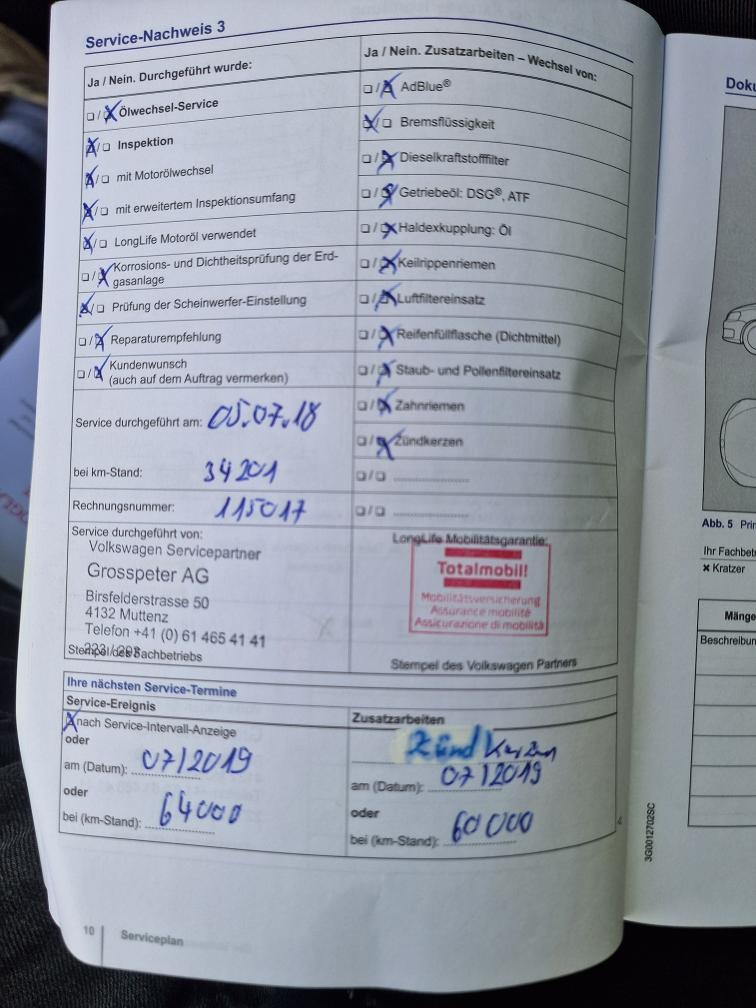 Service-Nachweis 3
Ja / Nein. Durchgeführt wurde:
❏ / ❏ Ölwechsel-Service
❏ / ❏ Inspektion
❏ / ❏ mit Motorölwechsel
❏ / ❏ mit erweitertem Inspektionsumfang
❏ / ❏ LongLife Motoröl verwendet
❏ / ❏ Korrosions- und Dichtheitsprüfung der Erd-
gasanlage
❏ / ❏ Prüfung der Scheinwerfer-Einstellung
❏ / ❏ Reparaturempfehlung
❏ / ❏ Kundenwunsch
(auch auf dem Auftrag vermerken)
Service durchgeführt am: 05.07.18
bei km-Stand: 34201
Rechnungsnummer: 115017
Service durchgeführt von:
Volkswagen Servicepartner
Grosspeter AG
Birsfelderstrasse 50
4132 Muttenz
Telefon +41 (0) 61 465 41 41
Stempel des Fachbetriebs
Ja / Nein. Zusatzarbeiten – Wechsel von:
❏ / ❏ AdBlue®
❏ / ❏ Bremsflüssigkeit
❏ / ❏ Dieselkraftstofffilter
❏ / ❏ Getriebeöl: DSG®, ATF
❏ / ❏ Haldexkupplung: Öl
❏ / ❏ Keilrippenriemen
❏ / ❏ Luftfiltereinsatz
❏ / ❏ Reifenfüllflasche (Dichtmittel)
❏ / ❏ Staub- und Pollenfiltereinsatz
❏ / ❏ Zahnriemen
❏ / ❏ Zündkerzen
❏ / ❏ ....................
❏ / ❏ ....................
LongLife Mobilitätsgarantie:
Totalmobil!
Mobilitätsversicherung
Assurance mobilité
Assicurazione di mobilità
Stempel des Volkswagen Partners
Ihre nächsten Service-Termine
Service-Ereignis
❏ nach Service-Intervall-Anzeige
oder
am (Datum): 07/2019
oder
bei (km-Stand): 64000
Zusatzarbeiten
Zündkerzen
am (Datum): 07/2019
oder
bei (km-Stand): 60000
10 Serviceplan
3G0012702SC
Abb. 5
Ihr Fachbet
× Kratzer
Mänge